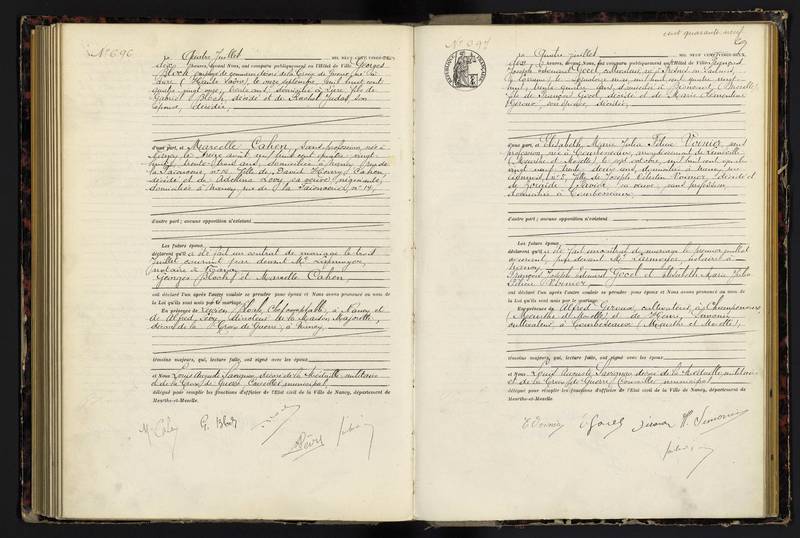 N° 696
Le Quatre Juillet mil neuf cent vingt-deux
dix heures, devant Nous, ont comparu publiquement en l'Hôtel de Ville: Georges
Bloch, décoré de la Croix de Guerre, né à
Lure (Haute Saône) le onze septembre mil huit cent
quatre vingt onze, trente ans, domicilié à Lure, fils de
Gabriel Bloch, décédé et de Rachel Judas son
épouse, décédée,
d'une part, et Marcelle Cahen, sans profession, née à
Nancy le treize août mil huit cent quatre vingt
ans, domiciliée à Nancy, rue de
la Faïencerie, n° 14, fille de David Henry Cahen,
décédé et de Adelina Lévy, sa veuve, négociante,
domiciliée à Nancy rue de la Faïencerie, n° 14,
d'autre part; aucune opposition n'existant
Les futurs époux
déclarent qu'il a été fait un contrat de mariage le trois
Juillet courant par devant Me
notaire à Nancy
Georges Bloch et Marcelle Cahen,
ont déclaré l'un après l'autre vouloir se prendre pour époux et Nous avons prononcé au nom de
la Loi qu'ils sont unis par le mariage.
En présence de Bloch, Chef comptable, à Nancy et
de Alfred Lévy, directeur de la Maison Majorelle,
décoré de la Croix de Guerre, à Nancy,
témoins majeurs, qui, lecture faite, ont signé avec les époux
et Nous Louis Auguste décoré de la Médaille militaire
et de la Croix de Guerre, Conseiller municipal,
délégué pour remplir les fonctions d'officier de l'Etat civil de la Ville de Nancy, département de
Meurthe-et-Moselle.
M. Cahen G. Bloch
Lévy
cent quarante neuf
149
N° 697
Le Quatre Juillet mil neuf cent vingt-deux
dix heures, devant Nous, ont comparu publiquement en l'Hôtel de Ville: François
Joseph Edouard Gocel, cultivateur, né à
fils de François Gocel, décédé et de Marie Clémentine
Giroux, son épouse, décédée,
d'une part, et Elisabeth Marie Julia Féline Voinier, sans
profession, née à Courbesseaux, arrondissement de Lunéville
(Meurthe et Moselle) le sept octobre mil huit cent quatre
vingt neuf, trente deux ans, domiciliée à Nancy, rue
fille de Joseph Célestin Voinier, décédé et
de sa veuve, sans profession,
domiciliée à Courbesseaux,
d'autre part; aucune opposition n'existant
Les futurs époux
déclarent qu'il a été fait un contrat de mariage le premier juillet
courant, par devant Me notaire à
Nancy
François Joseph Edouard Gocel et Elisabeth Marie Julia
Féline Voinier
ont déclaré l'un après l'autre vouloir se prendre pour époux et Nous avons prononcé au nom de
la Loi qu'ils sont unis par le mariage.
En présence de Alfred Giroux, cultivateur, à Champenoux
(Meurthe et Moselle) et de Henri Simonin,
cultivateur, à Courbesseaux (Meurthe et Moselle),
témoins majeurs, qui, lecture faite, ont signé avec les époux
et Nous Louis Auguste décoré de la Médaille militaire
et de la Croix de Guerre, Conseiller municipal
délégué pour remplir les fonctions d'officier de l'Etat civil de la Ville de Nancy, département de
Meurthe-et-Moselle.
E Voinier E Gocel Giroux H. Simonin